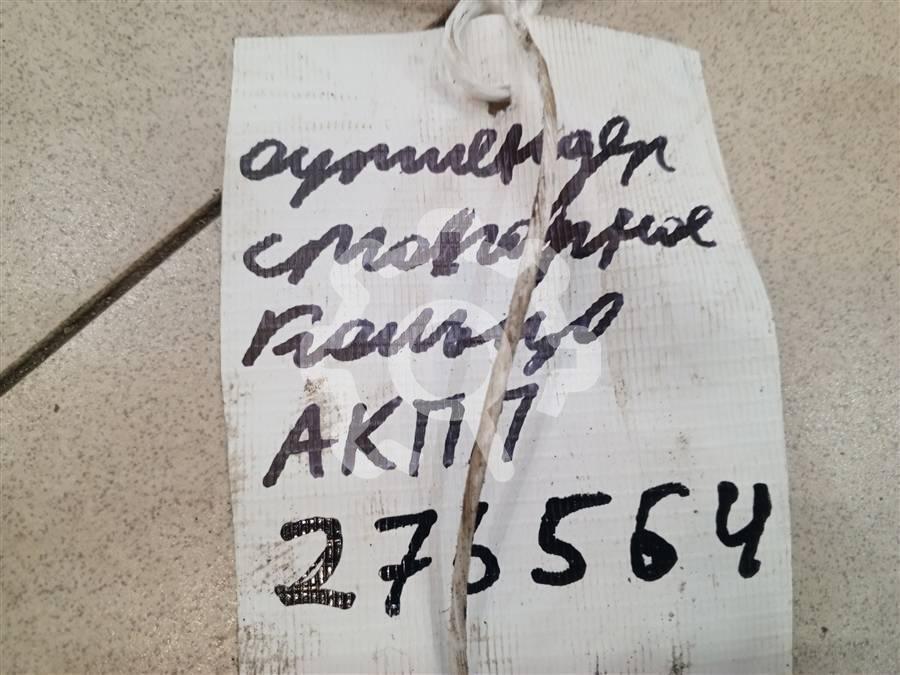 аутлендер
стопорное
кольцо
АКПП
276564